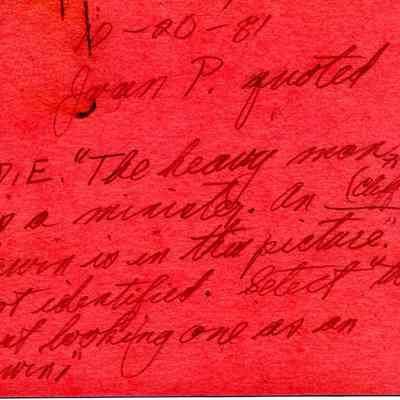 6-20-81
Joan P. quoted
D.E. "The heavy man
is a minister. An
is in this picture."
not identified. Select "the
looking one as an